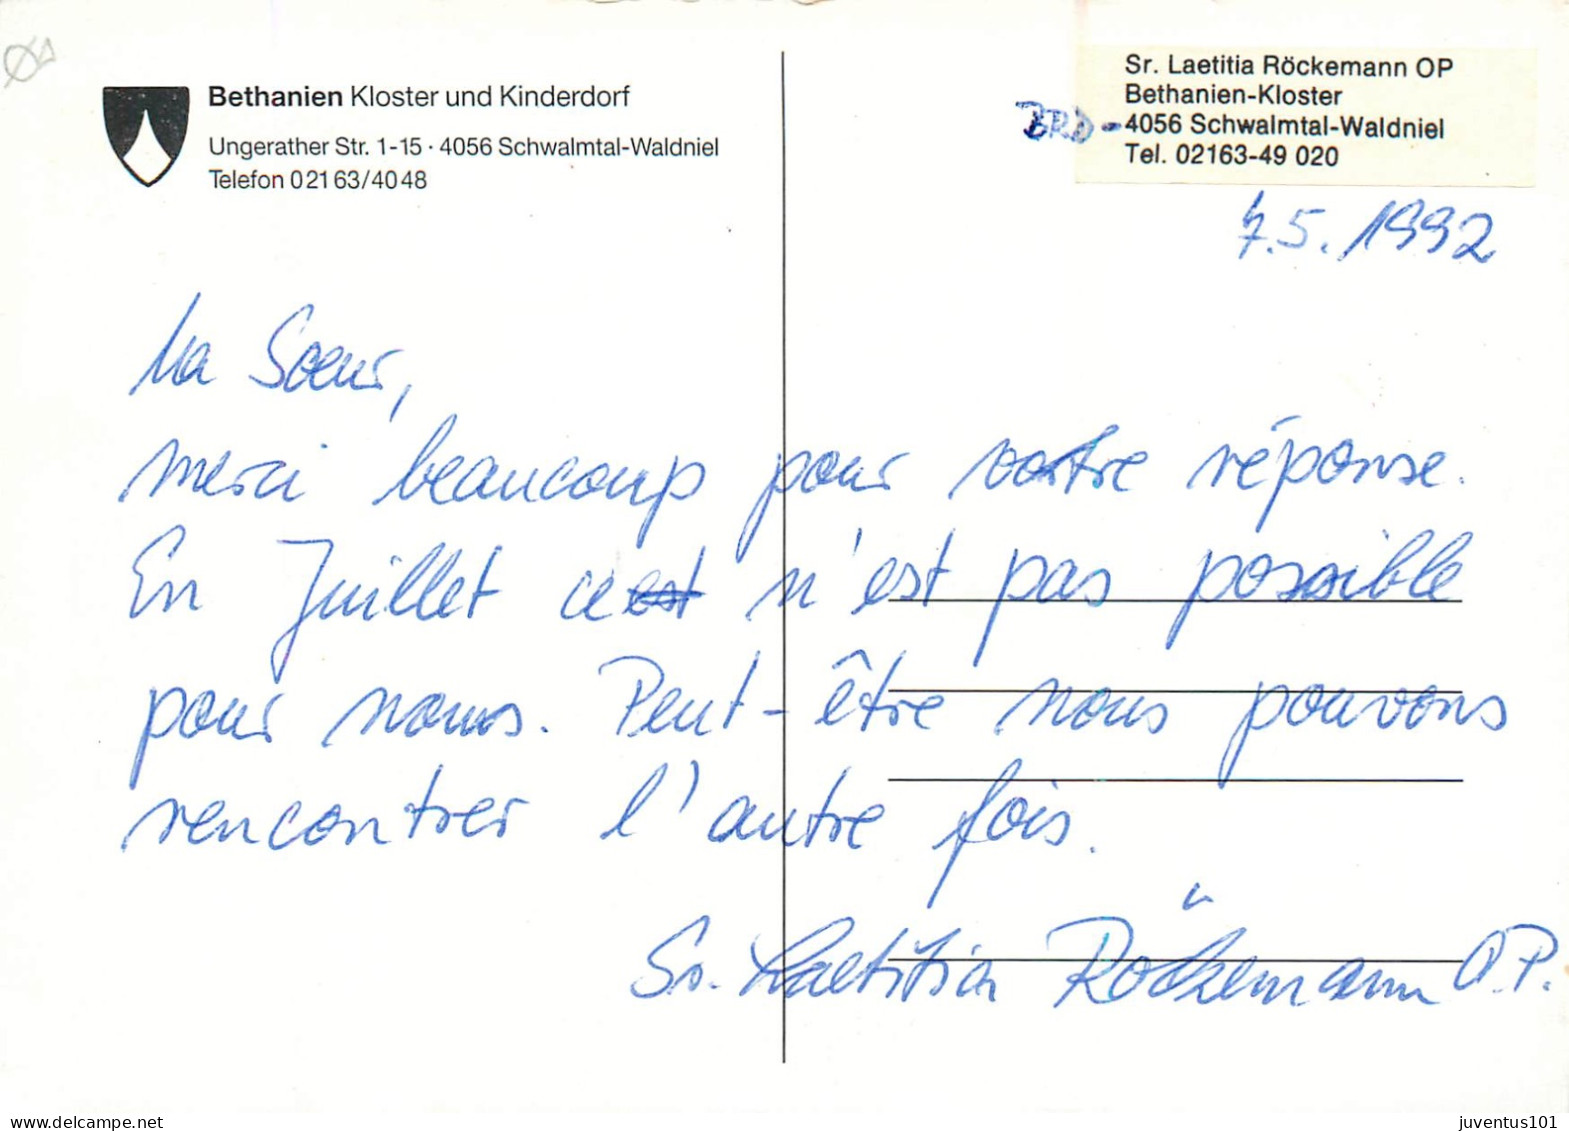 Bethanien Kloster und Kinderdorf
Ungerather Str. 1-15 · 4056 Schwalmtal-Waldniel
Telefon 02163/4048
Sr. Laetitia Röckemann OP
Bethanien-Kloster
BRD-4056 Schwalmtal-Waldniel
Tel. 02163-49 020
7.5.1992
Ma Soeur,
merci beaucoup pour votre réponse.
En Juillet ce est n'est pas possible
pour nous. Peut-être nous pouvons
rencontrer l'autre fois.
Sr. Laetitia Röckemann O.P.
delcampe.net
juventus101